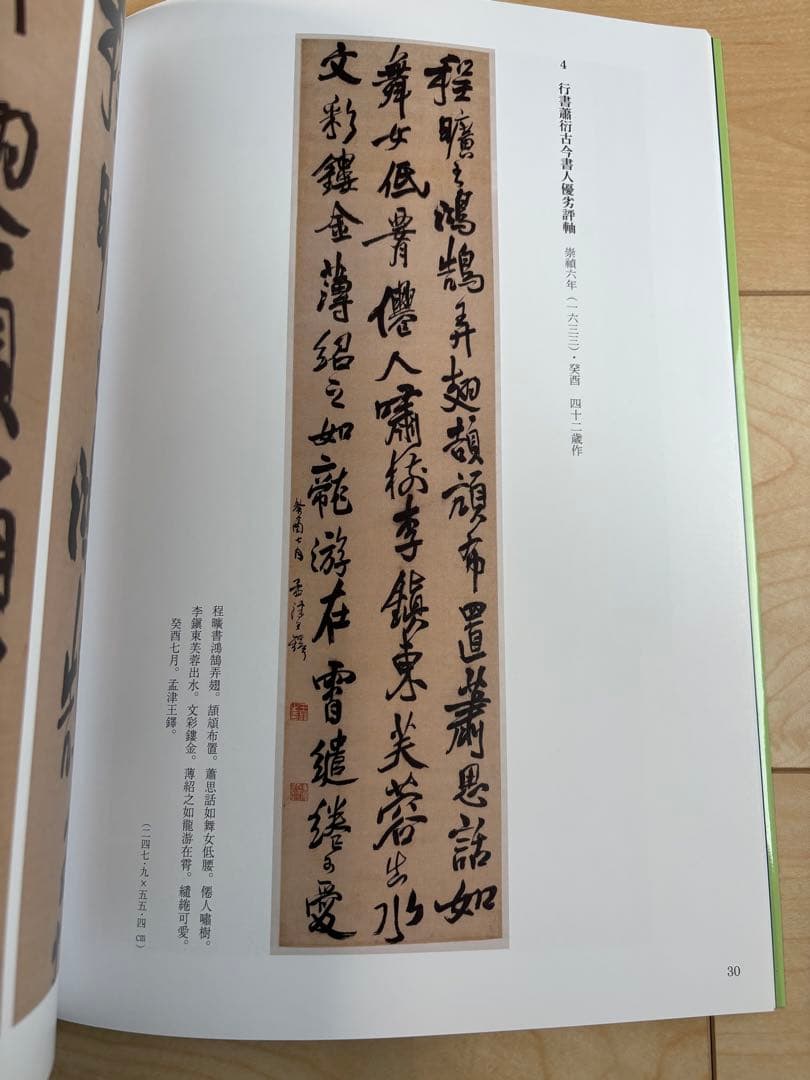 4　行書蕭衍古今書人優劣評軸　崇禎六年（一六三三）・癸酉　四十二歳作
程曠之鴻鵠弄翅頡頏布置蕭思話如
舞女低腰僊人嘯樹李鎮東芙蓉出水
文彩鏤金薄紹之如龍游在霄繾綣可愛
癸酉七月　孟津王鐸
程曠書鴻鵠弄翅。頡頏布置。蕭思話如舞女低腰。僊人嘯樹。
李鎭東芙蓉出水。文彩鏤金。薄紹之如龍游在霄。繾綣可愛。
癸酉七月。孟津王鐸。
（二四七・九×五五・四㎝）
30